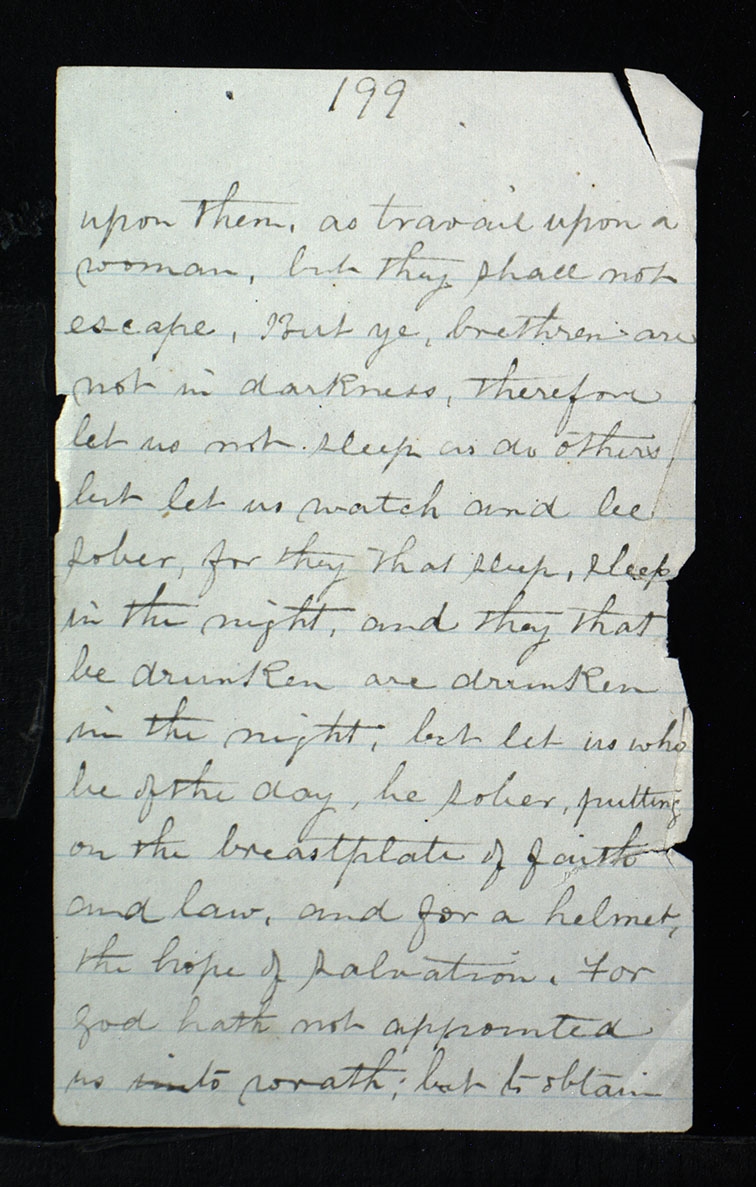 199
upon them, as travail upon a
woman, but they shall not
escape, But ye, brethren are
not in darkness, therefore
let us not sleep as do others,
but let us watch and be
sober, for they that sleep, sleep
in the night, and they that
be drunken are drunken
in the night; but let us who
be of the day, be sober, putting
on the breastplate of faith
and law, and for a helmet,
the hope of salvation. For
god hath not appointed
us into wrath; but to obtain